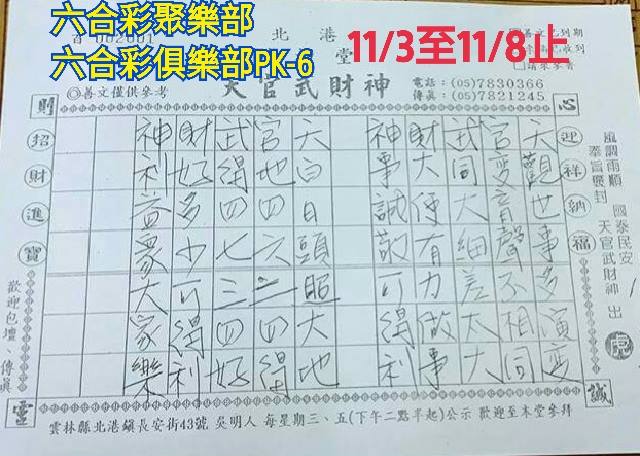 六合彩聚樂部
六合彩俱樂部PK-6
11/3至11/8止
北港
堂
天官武財神
◎善文僅供參考
電話:(05)7830366
傳真:(05)7821245
財
心
誠
靈
招財進寶
迎祥納福
風調雨順 國泰民安
奉旨敕封 天官武財神 出
虎
歡迎包壇、傳真
天觀世事多演變
官變音聲不相同
武同大細差太大
財大便有力做事
神事誠敬可得利
天白日頭照大地
官地四六二四得
武得四七三四好
財好多少可得利
神利益眾大家樂
雲林縣北港鎮長安街43號 吳明人 每星期三、五(下午二點半起)公示 歡迎至本堂參拜